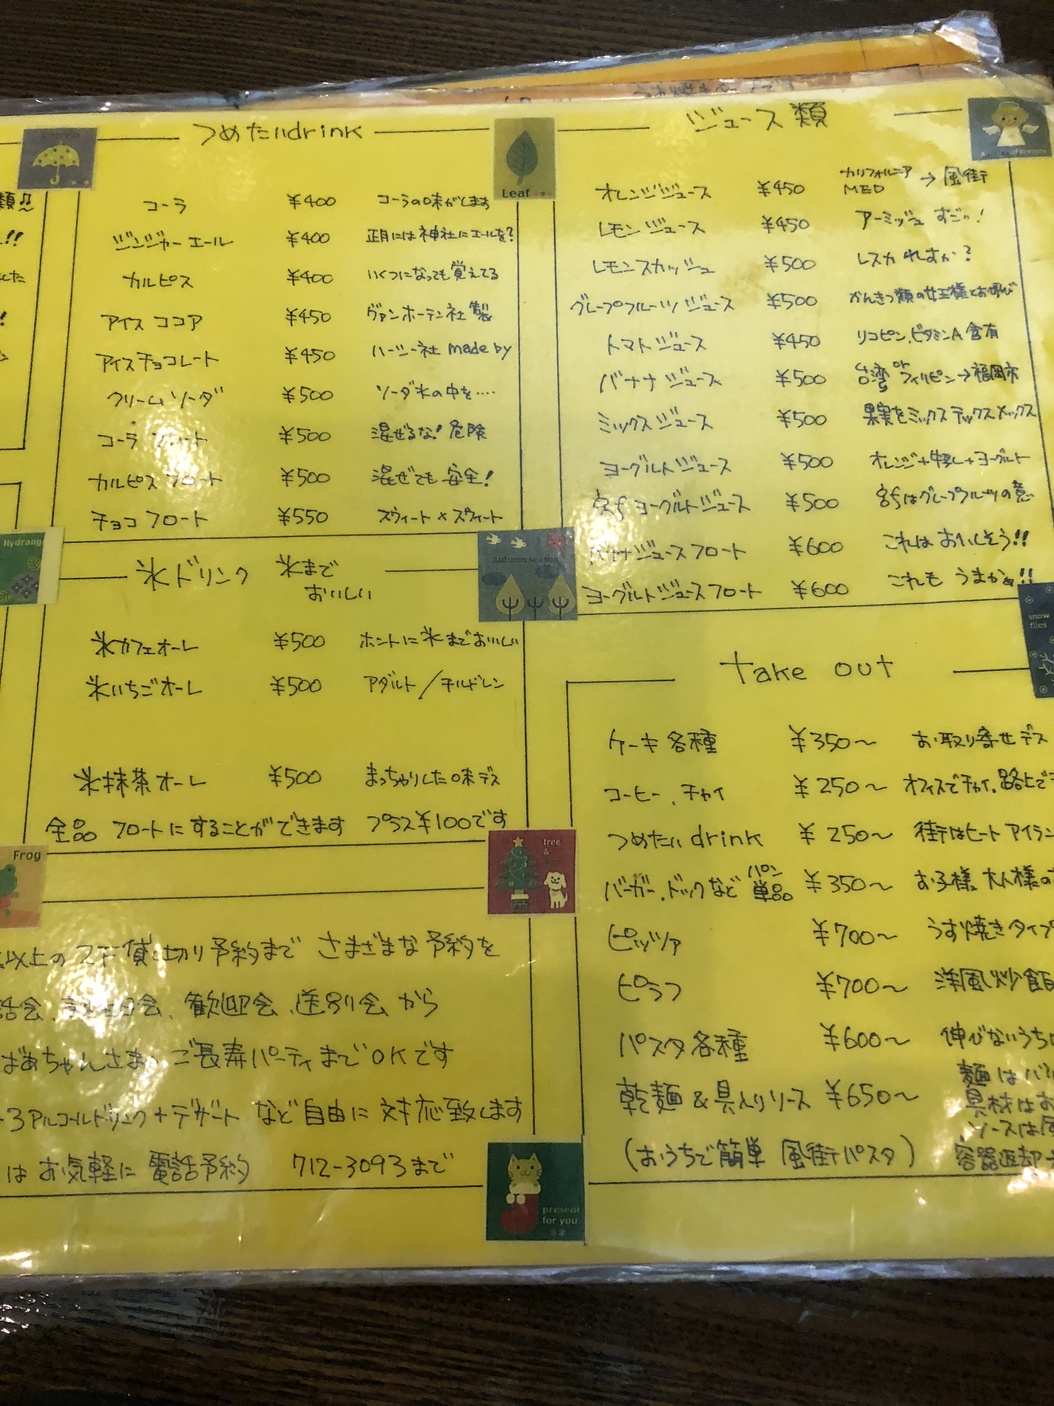 つめたいdrink
コーラ ¥400 コーラの味がします
ジンジャーエール ¥400 正月には神社にエールを?
カルピス ¥400 いくつになっても覚えてる
アイスココア ¥450 ヴァンホーテン社製
アイスチョコレート ¥450 ハーシー社 made by
クリームソーダ ¥500 ソーダ水の中を....
コーラフロート ¥500 混ぜるな!危険
カルピスフロート ¥500 混ぜても安全!
チョコフロート ¥550 スウィート×スウィート
Leaf
ジュース類
オレンジジュース ¥450 カリフォルニア MED → 風街
レモンジュース ¥450 アーミッシュ すごい!
レモンスカッシュ ¥500 レスカ れすか?
グレープフルーツジュース ¥500 かんきつ類の女王様とお呼び
トマトジュース ¥450 リコピン、ビタミンA含有
バナナジュース ¥500 台湾 or フィリピン→福岡市
ミックスジュース ¥500 果実をミックステックスメックス
ヨーグルトジュース ¥500 オレンジ+牛乳+ヨーグルト
ヨーグルトジュース ¥500 はグレープフルーツの意
バナナジュースフロート ¥600 これは おいしそう!!
ヨーグルトジュースフロート ¥600 これも うまかぁ!!
Hydrang
氷ドリンク 氷まで
おいしい
Autumn season
氷カフェオーレ ¥500 ホントに氷までおいしい
氷いちごオーレ ¥500 アダルト/チルドレン
氷抹茶オーレ ¥500 まっちゃりした味デス
全品 フロートにすることができます プラス¥100です
snow
flies
take out
ケーキ各種 ¥350〜 お取り寄せデス
コーヒー、チャイ ¥250〜 オフィスでチャイ、路上で
つめたいdrink ¥250〜 街はヒートアイラン
バーガー、ドックなど パン単品 ¥350〜 お子様、大人様の
ピッツァ ¥700〜 うす焼きタイプ
ピラフ ¥700〜 洋風炒飯
パスタ各種 ¥600〜 伸びないうち
乾麺&具入りソース ¥650〜 麺は
具材はお
ソースは風
(おうちで簡単 風街パスタ) 容器返却
Frog
tree
以上の 貸し切り予約まで さまざまな予約を
話会、誕生日会、歓迎会、送別会から
ばあちゃんさまのご長寿パーティまでOKです
アルコールドリンク+デザート など自由に対応致します
はお気軽に電話予約 712-3093まで
present
for you